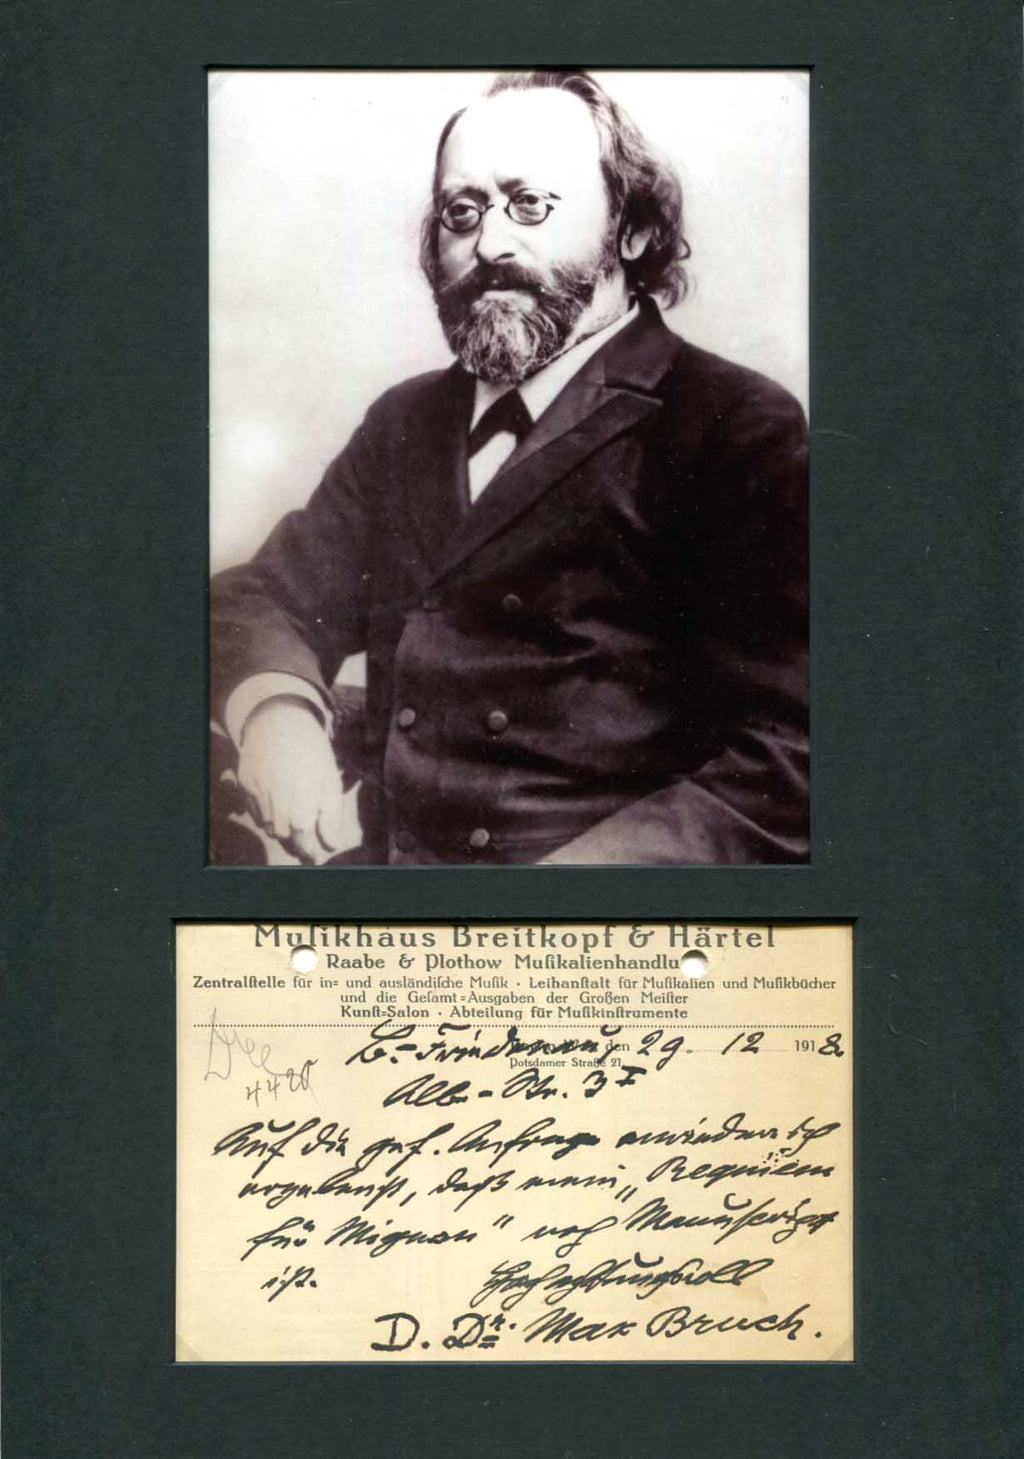 Muſikhaus Breitkopf & Härtel
Raabe & Plothow Muſikalienhandlu
Zentralſtelle für in= und ausländiſche Muſik · Leihanſtalt für Muſikalien und Muſikbücher
und die Geſamt=Ausgaben der Großen Meiſter
Kunſt=Salon · Abteilung für Muſikinſtrumente
B.-Friedenau, den 29. 12 1918.
Potsdamer Straße 21
4420
Albe-Str. 3 I
Auf die gef. Anfrage erwiedere ich
ergebenst, daß mein „Requiem
für Mignon" noch Manuscript
ist. Hochachtungsvoll
D. Dr. Max Bruch.